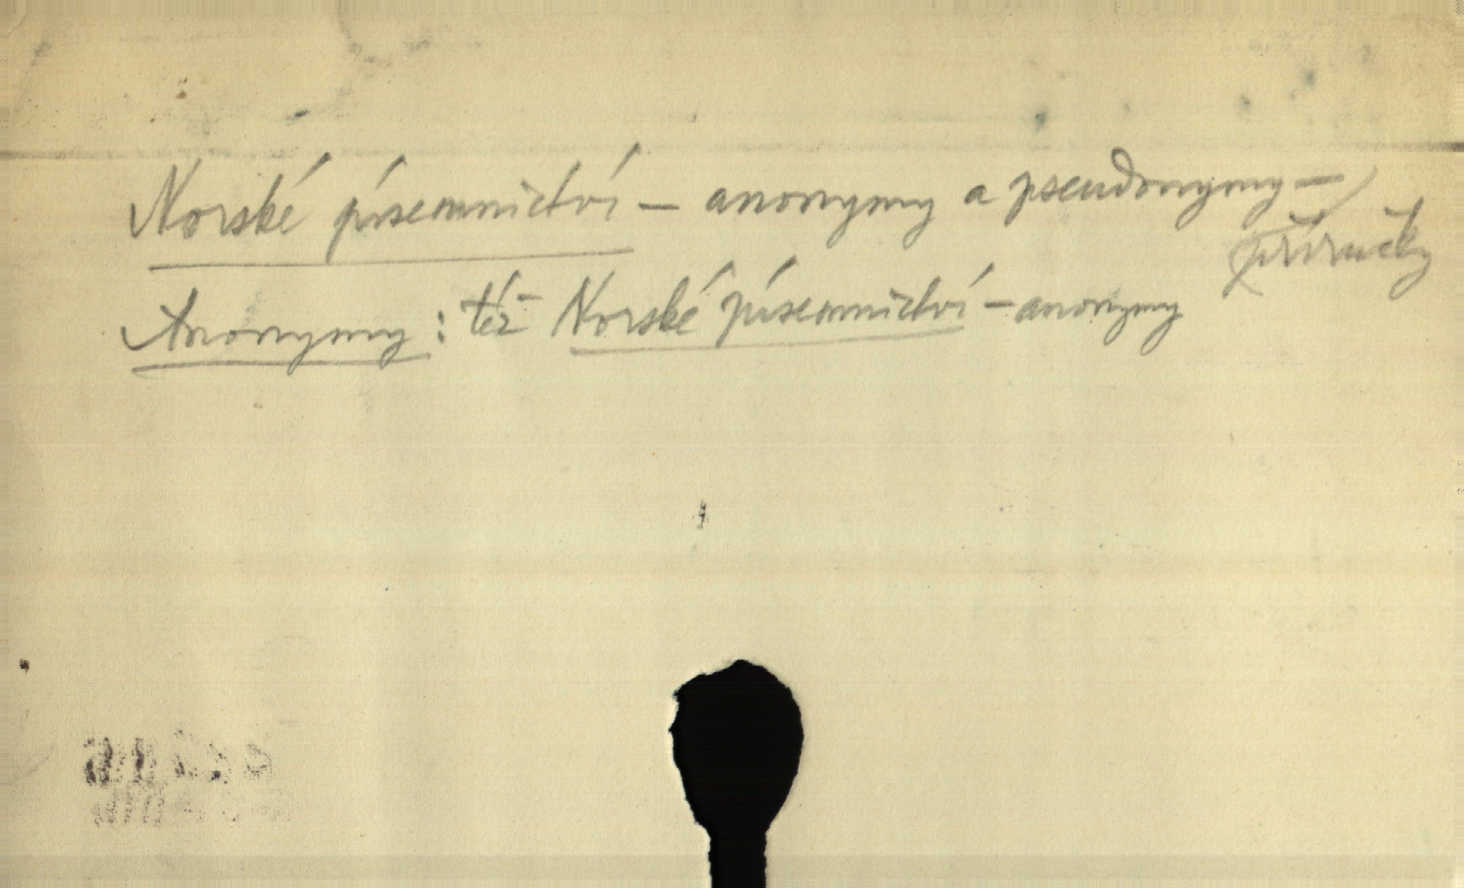 Norské písemnictví – anonymy a pseudonymy –
příručky
Anonymy : též Norské písemnictví – anonymy